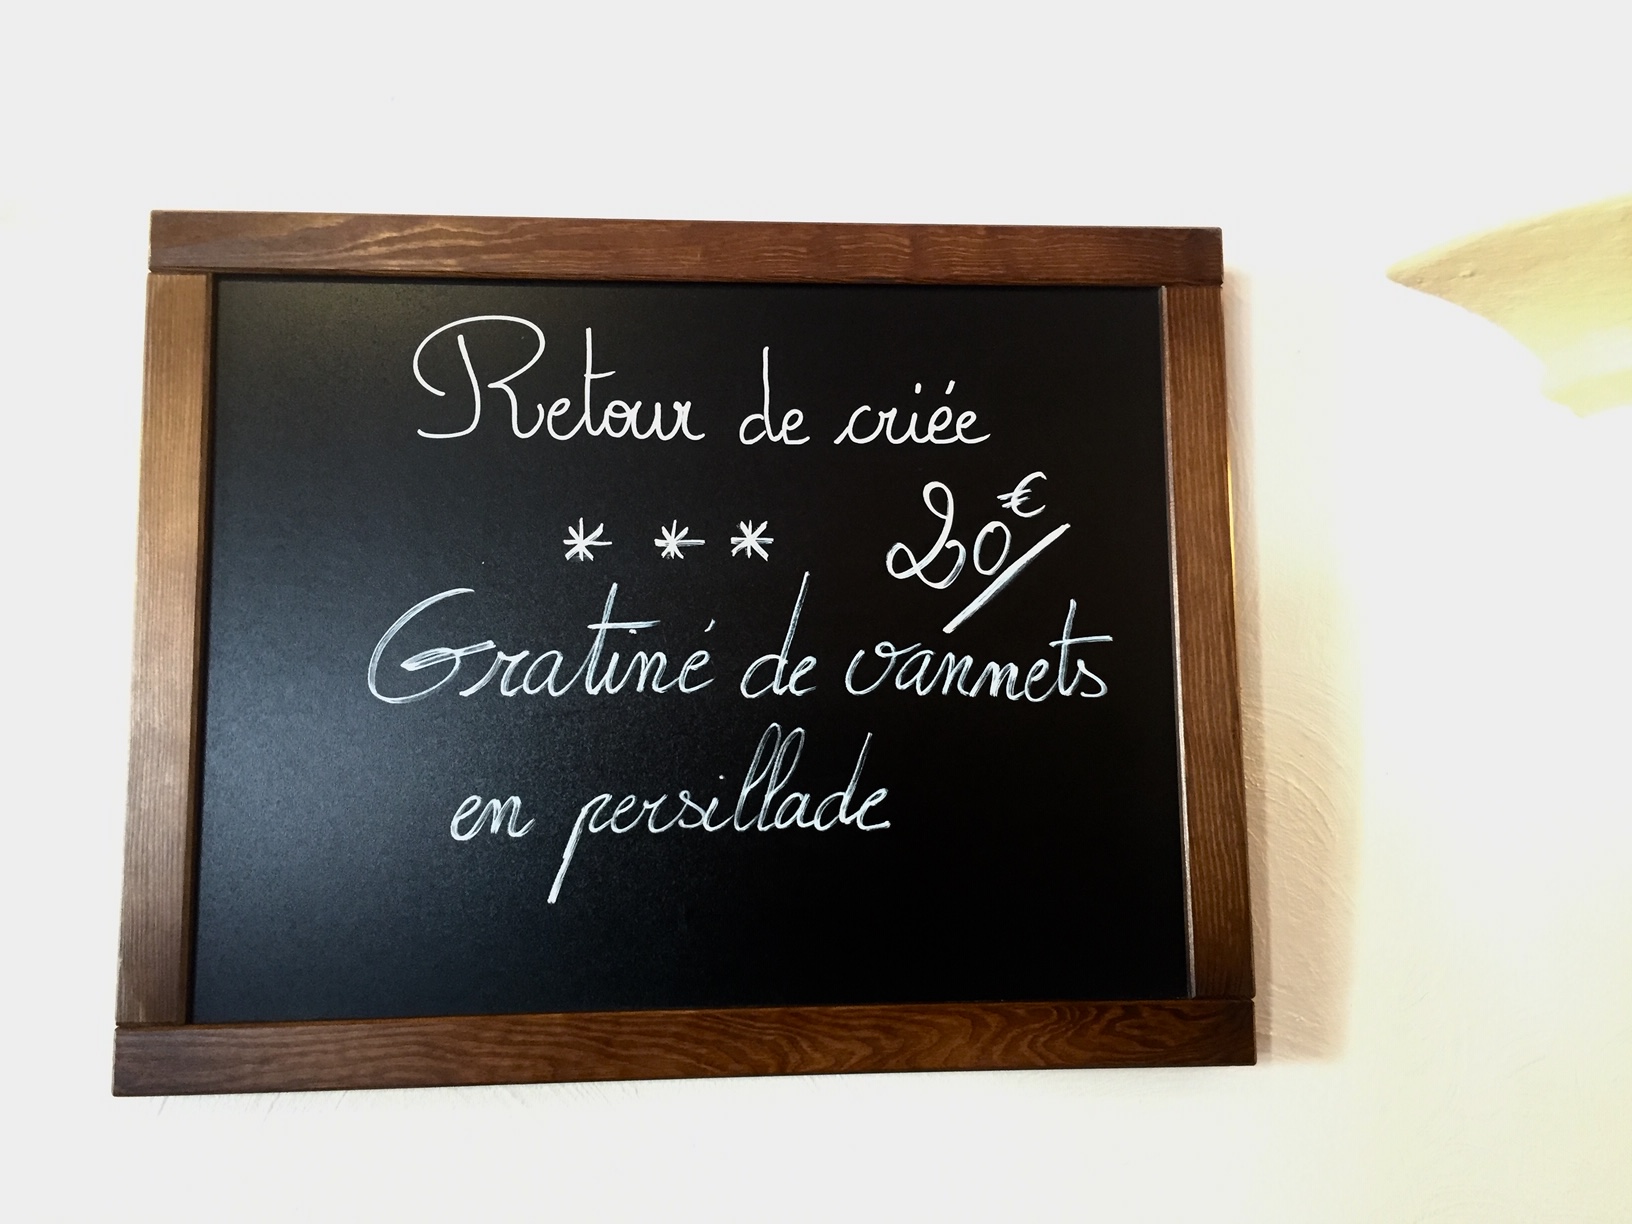 Retour de criée
* * * 20€
Gratiné de vannets
en persillade